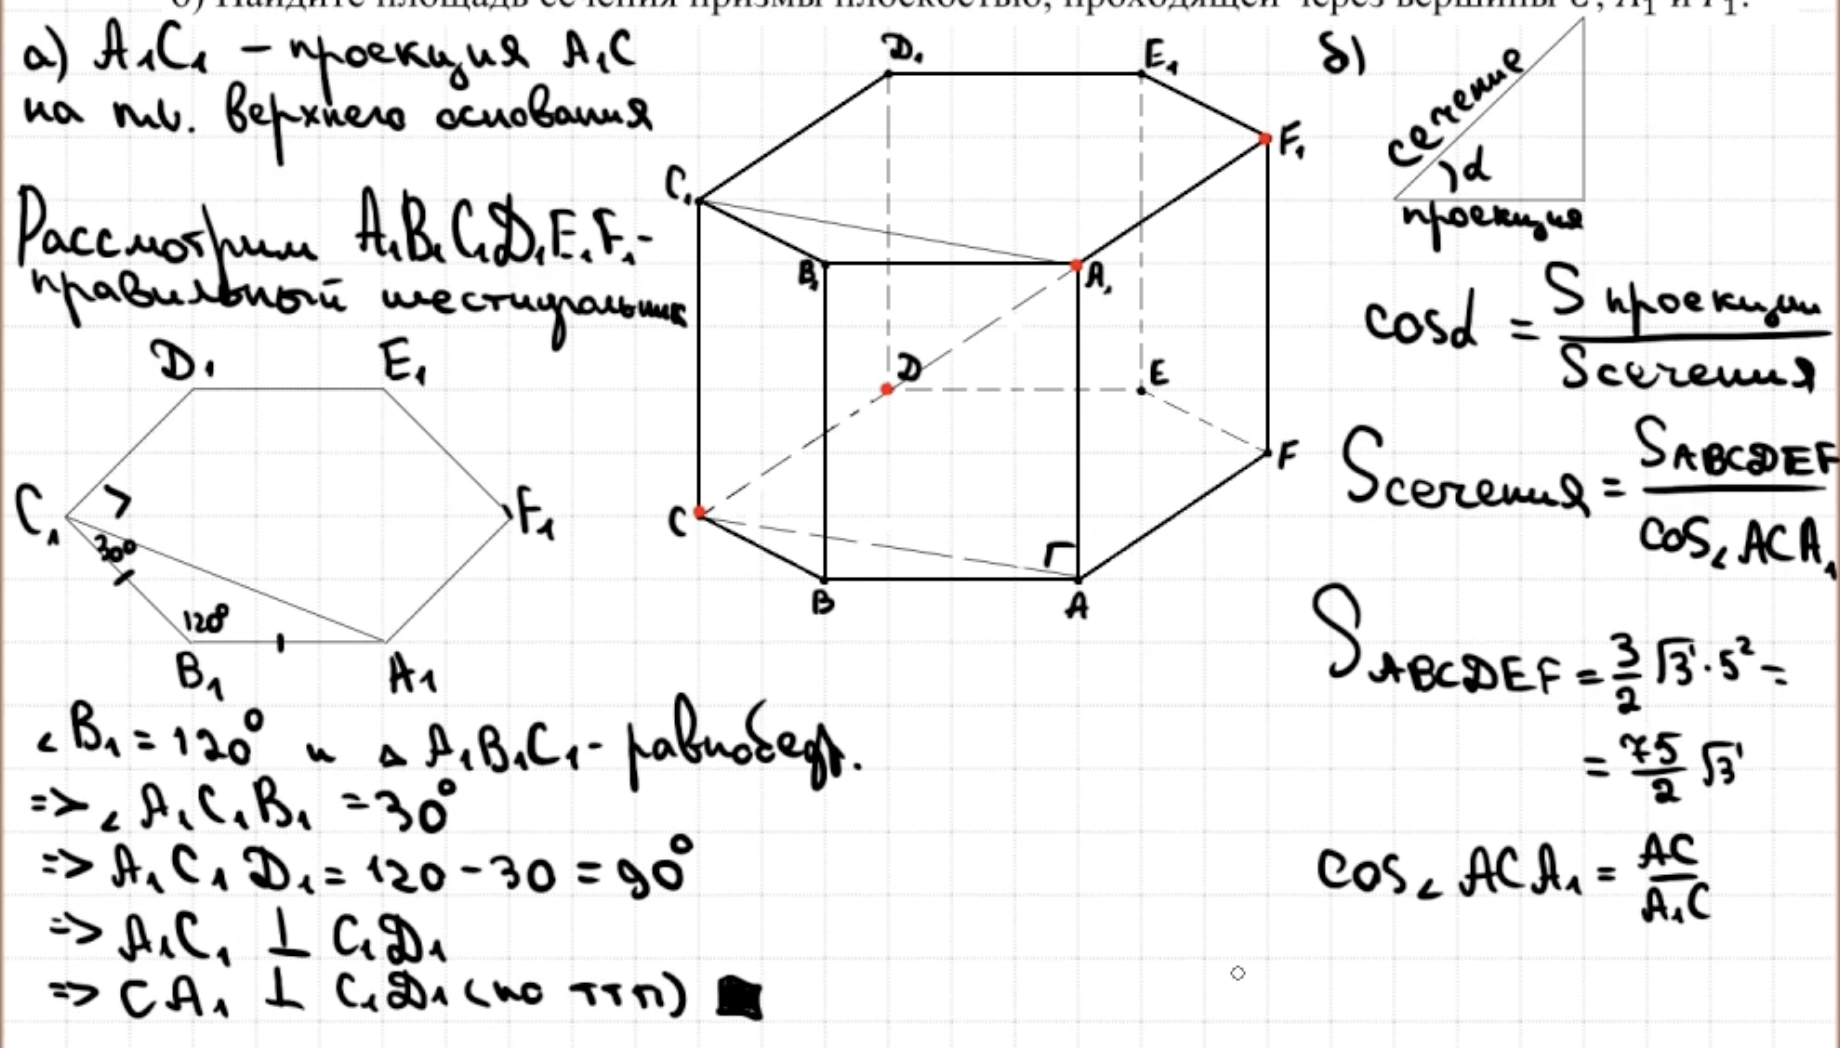 б) Найдите площадь сечения призмы плоскостью, проходящей через вершины C, A₁ и F₁.
а) A₁C₁ – проекция A₁C
на пл. верхнего основания
Рассмотрим A₁B₁C₁D₁E₁F₁ -
правильный шестиугольник
D₁ E₁
C₁ F₁
30°
120°
B₁ A₁
∠B₁ = 120° и △ A₁B₁C₁ - равнобедр.
=> ∠ A₁C₁B₁ = 30°
=> A₁C₁D₁ = 120 - 30 = 90°
=> A₁C₁ ⊥ C₁D₁
=> CA₁ ⊥ C₁D₁ (по ттп)
D₁ E₁
F₁
C₁
B₁ A₁
D E
C F
B A
б)
сечение
α
проекция
cosα = S проекции / S сечения
S сечения = S ABCDEF / cos∠ACA₁
S ABCDEF = 3/2 √3 · 5² =
= 75/2 √3
cos∠ACA₁ = AC / A₁C